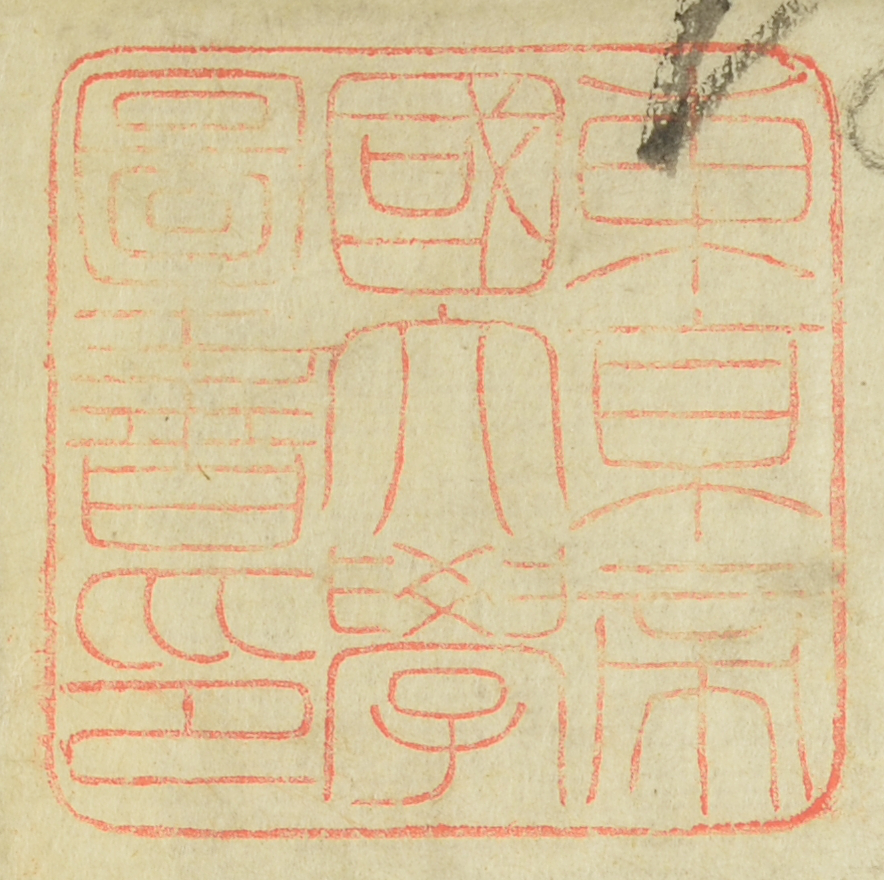 東京帝
國大學
圖書印